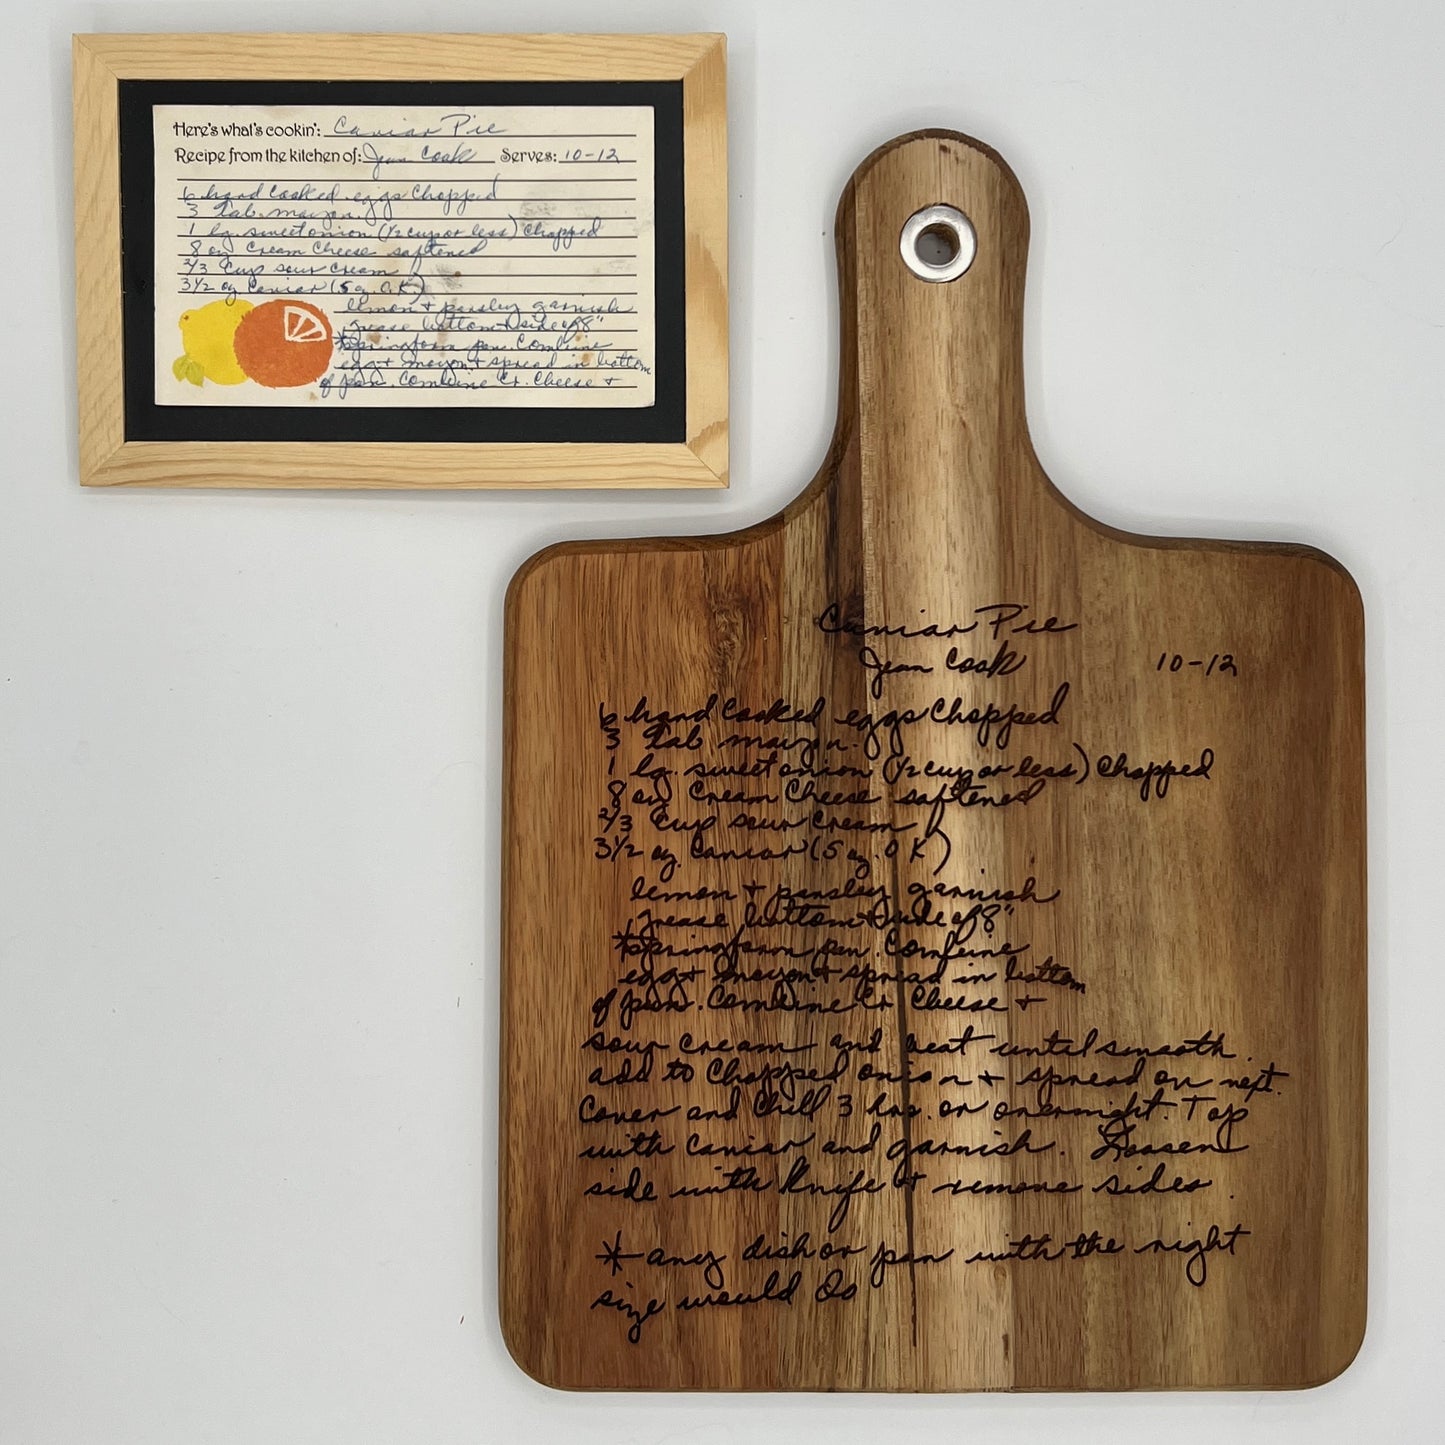 Here's what's cookin': Caviar Pie
Recipe from the kitchen of: Jean Cook Serves: 10-12
6 hard cooked eggs chopped
3 tab. mayon.
1 lg. sweet onion (1/2 cup or less) chopped
8 oz cream cheese softened
2/3 cup sour cream
3 1/2 oz. caviar (5 oz. O.K.)
lemon + parsley garnish
grease bottom + side of 8"
*springform pan. Combine
egg + mayon + spread in bottom
of pan. Combine Cr. Cheese +
Caviar Pie
Jean Cook 10-12
6 hard cooked eggs chopped
3 tab. mayon.
1 lg. sweet onion (1/2 cup or less) chopped
8 oz cream cheese softened
2/3 cup sour cream
3 1/2 oz. caviar (5 oz. O K)
lemon + parsley garnish
grease bottom + side of 8"
*springform pan. Combine
egg + mayon + spread in bottom
of pan. Combine Cr Cheese +
sour cream and beat until smooth.
add to chopped onion + spread on next.
Cover and chill 3 hrs. or overnight. Top
with caviar and garnish. Loosen
side with knife + remove sides.
* any dish or pan with the right
size would do